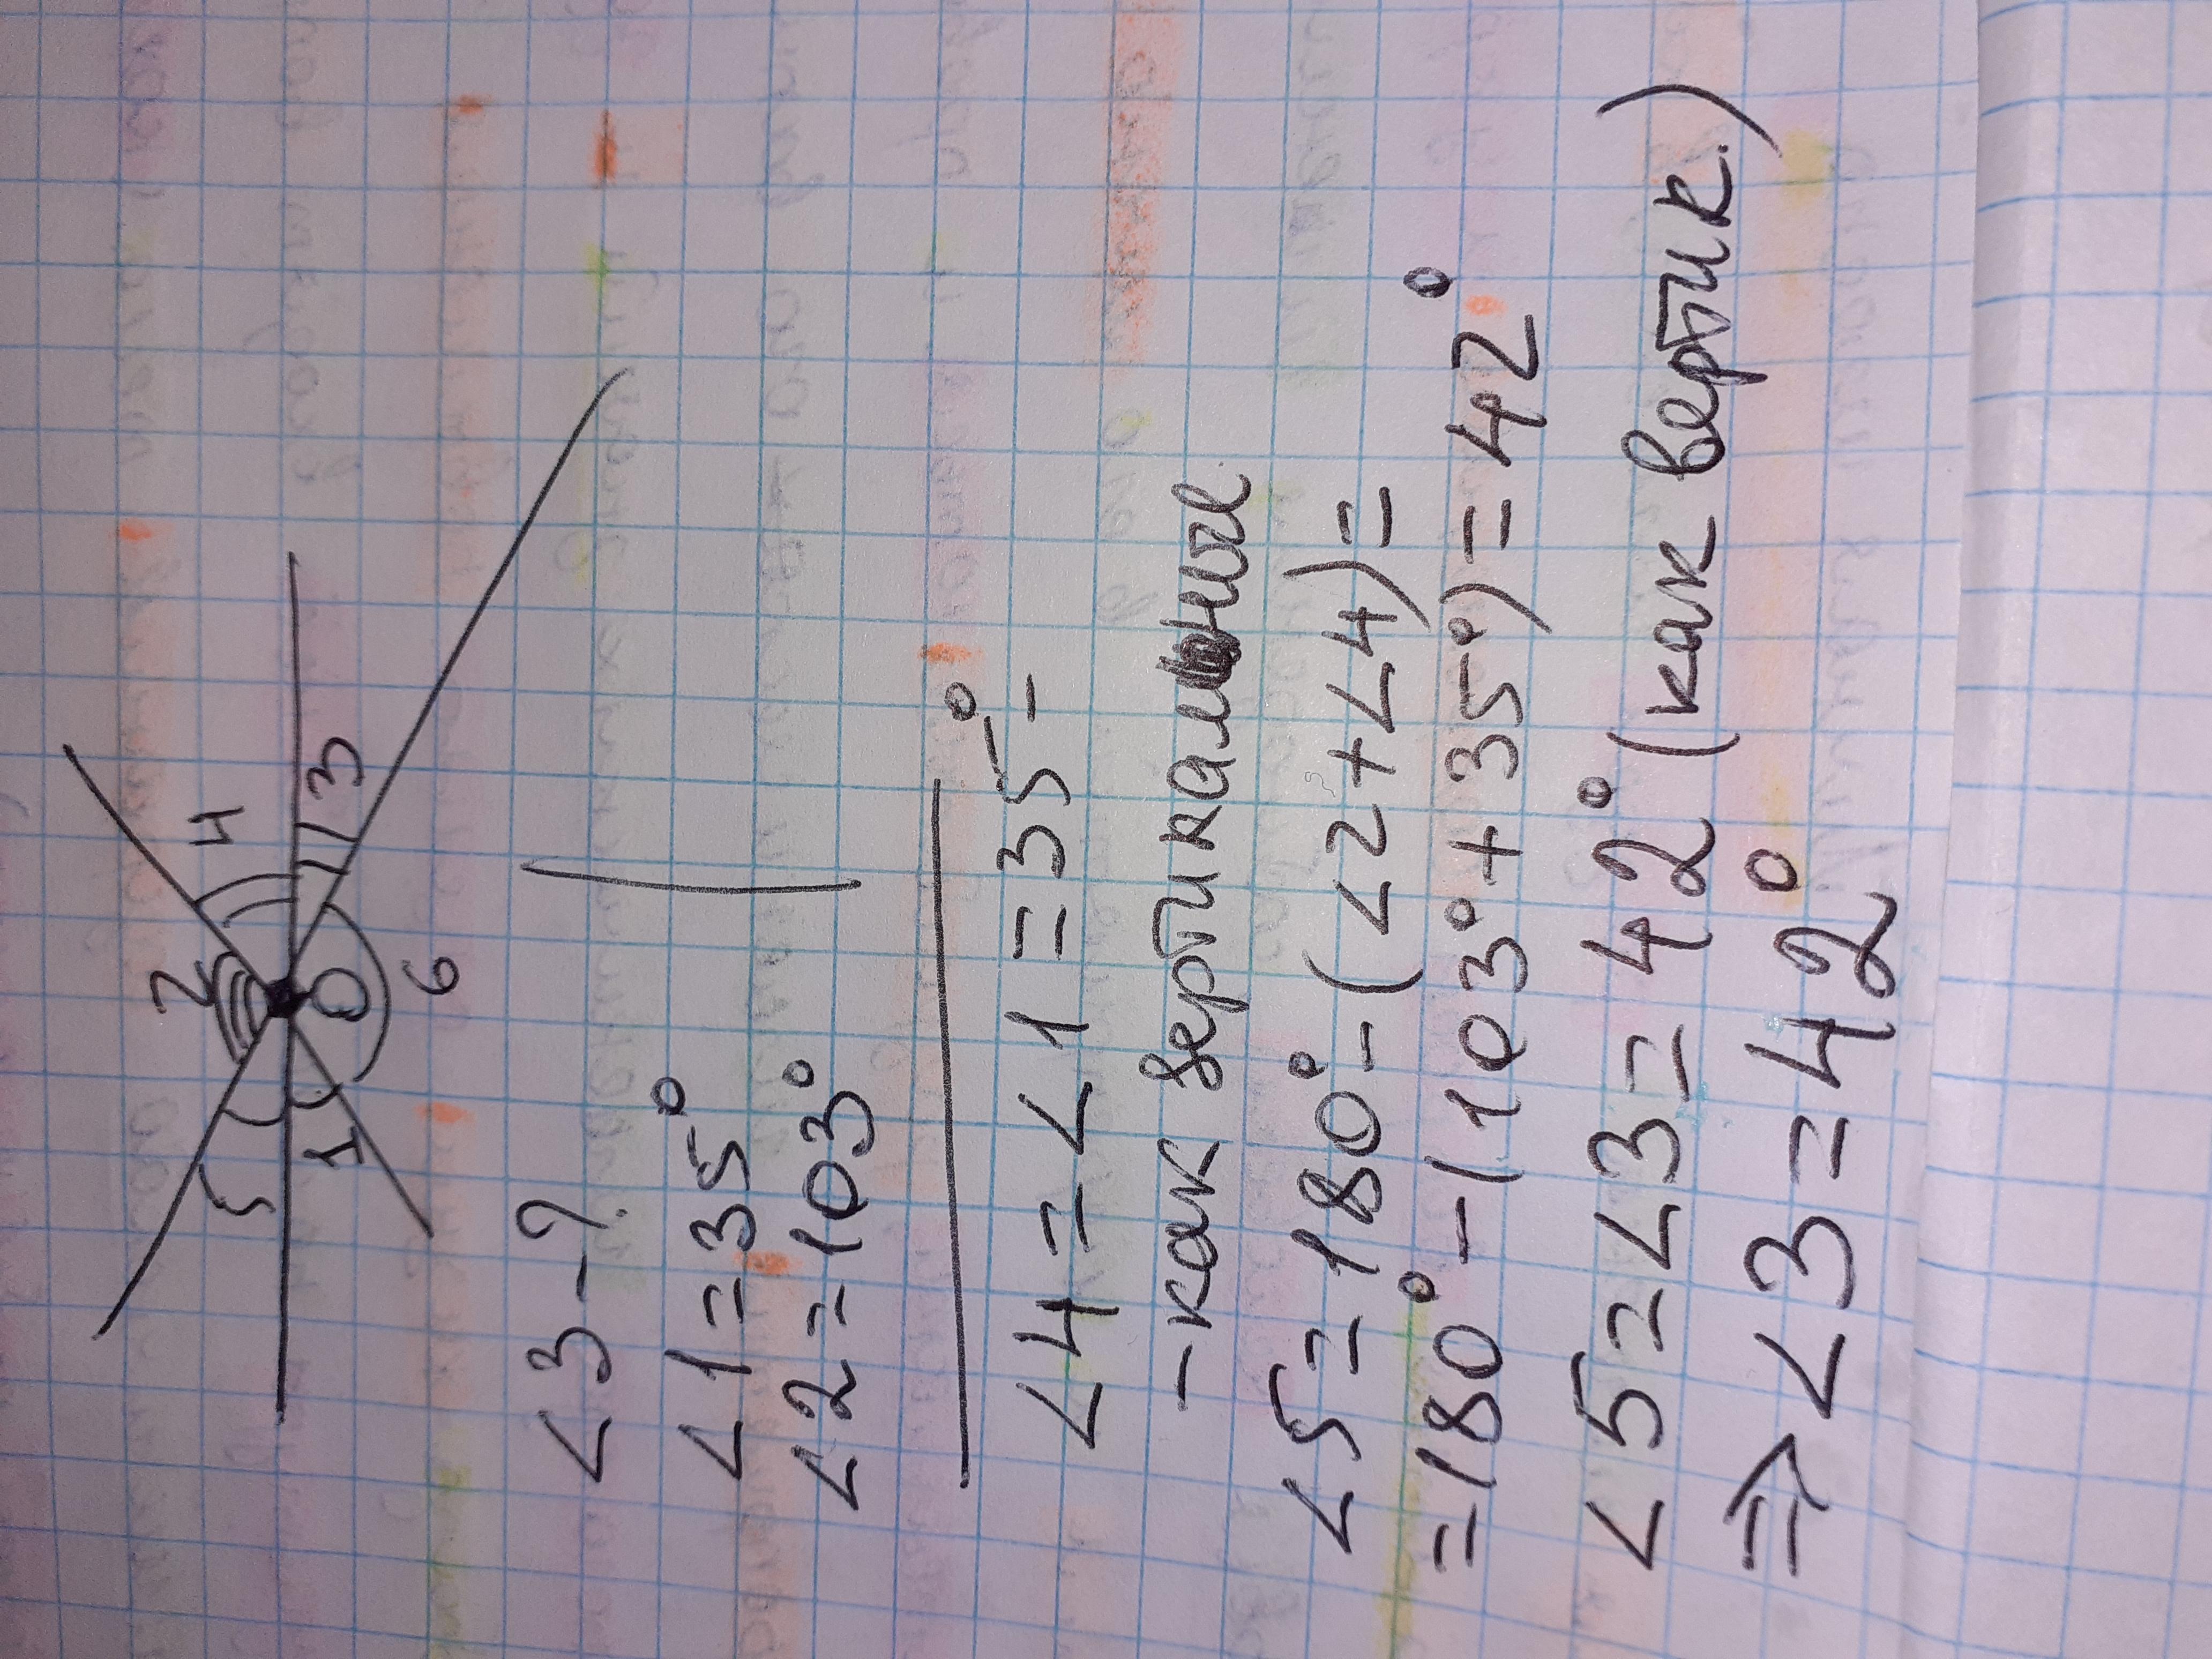 2
4
5
1
3
O
6
∠3-?
∠1=35°
∠2=103°
∠4=∠1=35°-
-как вертикальные
∠5=180°-(∠2+∠4)=
=180°-(103°+35°)=42°
∠5=∠3=42°(как вертик.)
⇒∠3=42°